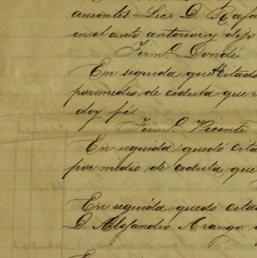 auientes Lic. D. Rafa
en el auto anterior y dejo
Firmº. Dondé
En seguida quedº citado
por medio de cédula que
doy fé.
Firmº. Vicente
En seguida quedó cita
por medio de cédula que
En seguida quedó citad
D. Alejandro Arango